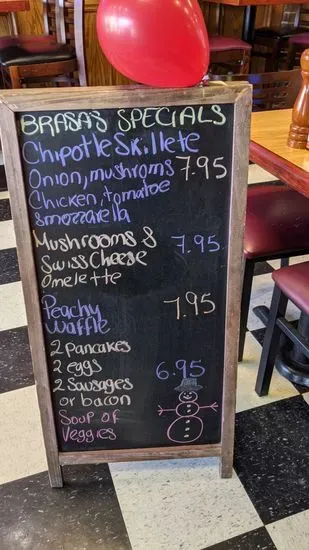 BRASAS SPECIALS
Chipotle Skillete
Onion, mushroms 7.95
Chicken, tomatoe
& mozzarella
Mushrooms & 7.95
Swiss Cheese
Omelette
Peachy 7.95
Waffle
2 Pancakes
2 eggs 6.95
2 Sausages
or bacon
Soup of
Veggies